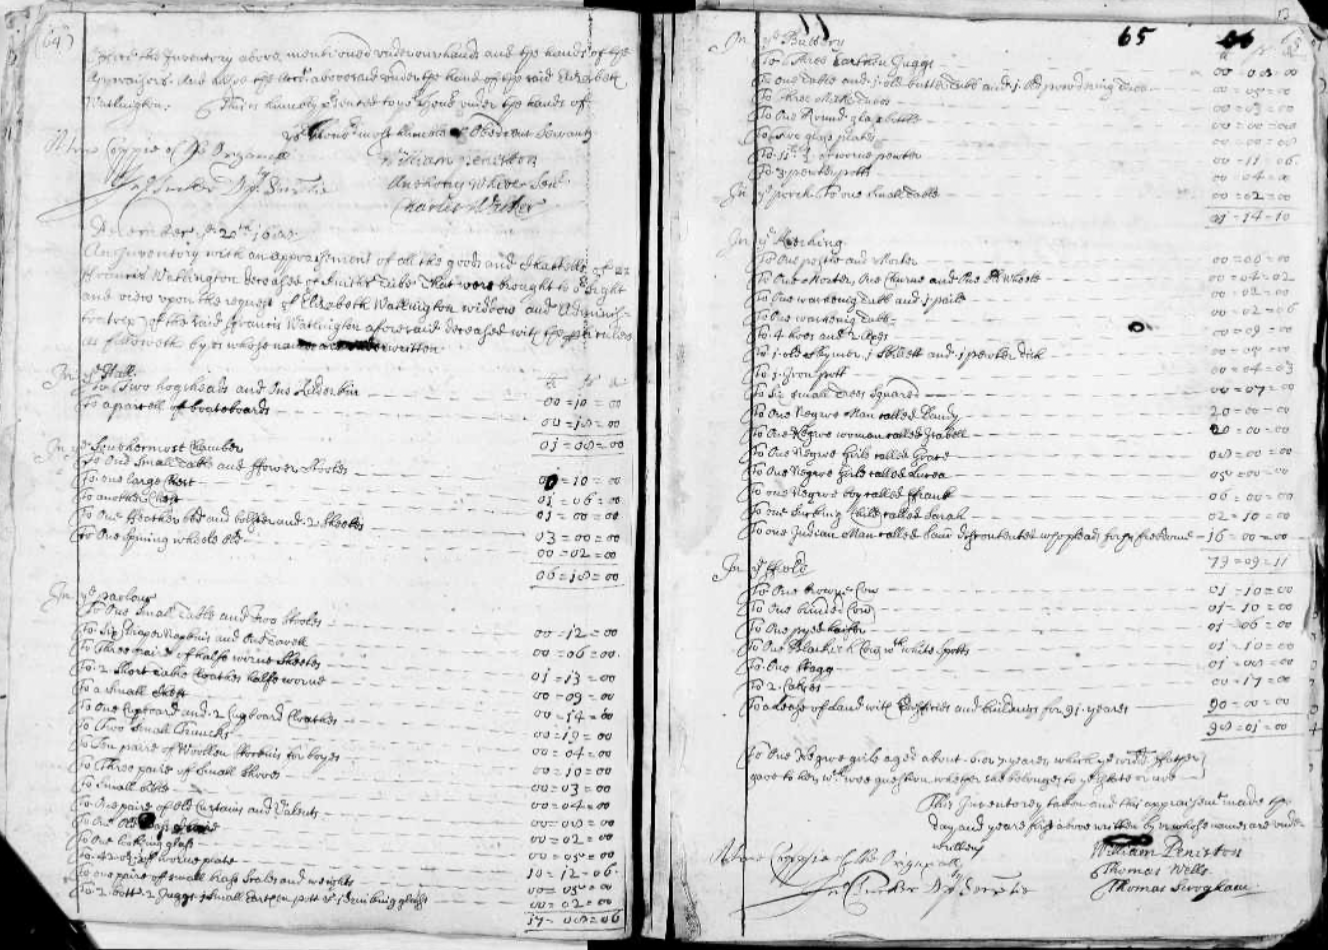 (64)
the Inventory above mentioned under our hands and the hands of the
Appraizers. And also the above said under the hand of the said Elizabeth
Watlington. This is humbly under the hands of
most humble & Obedient Servants
A true Coppie of the Originall
William Peniston
Anthony White Senr
Charles Walker
December ye 20th
An Inventory with an appraisement of all the goods and Chattells of
Francis Watlington deceased of Smiths Tribe That were brought to sight
and view upon the request of Elizabeth Watlington widdow and Adminis=
tratrix of the said Francis Watlington aforesaid deceased with the perticulers
as followeth by us whose names are underwritten
In ye Hall
To Two hogsheads and One Kilderkin 00=10=00
To a parcell of boateboards 00=18=00
01=08=00
In ye Southermost Chamber
To One Small Table and ffower Stooles 00=10=00
To one large Chest 01=06=00
To another Chest 01=00=00
To One ffeather bed and bolster and 2 Sheetes 03=00=00
To One Spining wheele old 00=02=00
06=18=00
In ye parlour
To One Small Table and two Stooles 00=12=00
To Six Diaper Napkins and One Towell 00=06=00
To Three paire of halfe worne Sheetes 01=13=00
To 2 Short Table Cloathes halfe worne 00=09=00
To a Small Chest 00=14=00
To One Cupboard and 2 Cupboard Cloathes 00=19=00
To Two Small Truncks 00=04=00
To Ten paire of Woollen Stockins for boyes 00=10=00
To Three paire of Small Shooes 00=03=00
To Small bible 00=04=00
To One paire of Old Curtains and Valents 00=08=00
To One Old 00=02=00
To One looking glass 00=05=00
To 42 oz of worne plate 10=12=06
To one paire of small brass Scales and weights 00=05=00
To 2 bottls 2 Juggs 1 Small Earthen pott & 1 drinking glass 00=02=00
17=08=06
65
In ye Buttery
To Three Earthen Juggs 00=03=00
To One Table and 1 old butter Tubb and 1 Old powdering Tubb 00=05=00
To three Milke Tubbs 00=03=00
To One Round glass bottle
To five glass plates
To 11 li ½ of worne pewter 00=11=06
To 3 pewter potts 00=04=00
In ye porch To one small Table 00=02=00
01=14=10
In ye Kitching
To One pestle and Morter
To One Morter, One Churne and One Old Wheele 00=04=02
To One washing Tubb and 1 paile 00=02=00
To One washing Tubb 00=02=06
To 4 hoes and 2 00=09=00
To 1 old Skymer, 1 Skillett and 1 pewter dish 00=05=00
To 1 Iron pott 00=04=03
To Six small Trees Squared 00=07=00
To One Negroe Man called Dandy 20=00=00
To One Negroe woman called Isabell 20=00=00
To One Negroe Girle called Grace 08=00=00
To One Negroe Girle called Lucea 05=00=00
To one Negroe boy called ffrank 06=00=00
To one Sucking Child called Sarah 02=10=00
To one Indian Man called Sam discontented who pleads for his freedome 16=00=00
79=09=11
In ye ffeild
To One browne Cow 01=10=00
To One brinded Cow 01=10=00
To One pyed heifer 01=06=00
To One Blackish Cow with white spotts 01=10=00
To One Stagg 01=08=00
To 2 Calves 00=17=00
To a Lease of Land with Edifices and buildings for 91 yeares 90=00=00
98=01=00
To One Negroe girle aged about 6 or 7 yeares, which ye widds ffather
gave to her, wch wee question whether she belongs to ye Estate or noe
This Inventorey taken and this appraisemt made the
day and yeare first above written by us whose names are under
written
William Peniston
Thomas Wells
Thomas
A true Coppie of the Originall